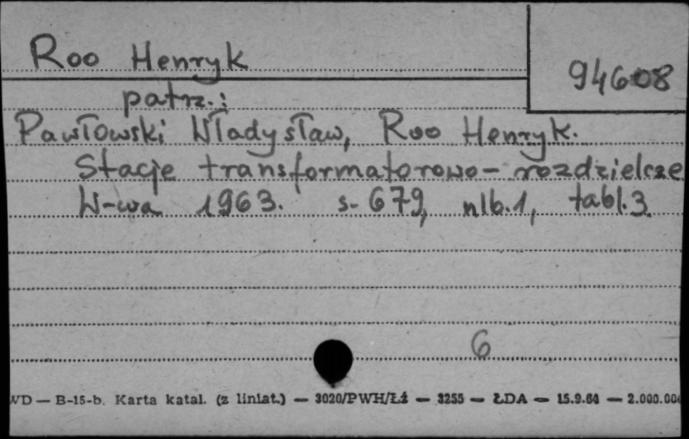 Roo Henryk
94608
patrz.:
Pawłowski Władysław, Roo Henryk.
Stacje transformatorowo-rozdzielcze
W-wa 1963. s. 679, nlb.1, tabl.3
6
WD — B-15-b. Karta katal. (z liniat.) — 3020/PWH/Łź — 3255 — ŁDA — 15.9.64 — 2.000.00